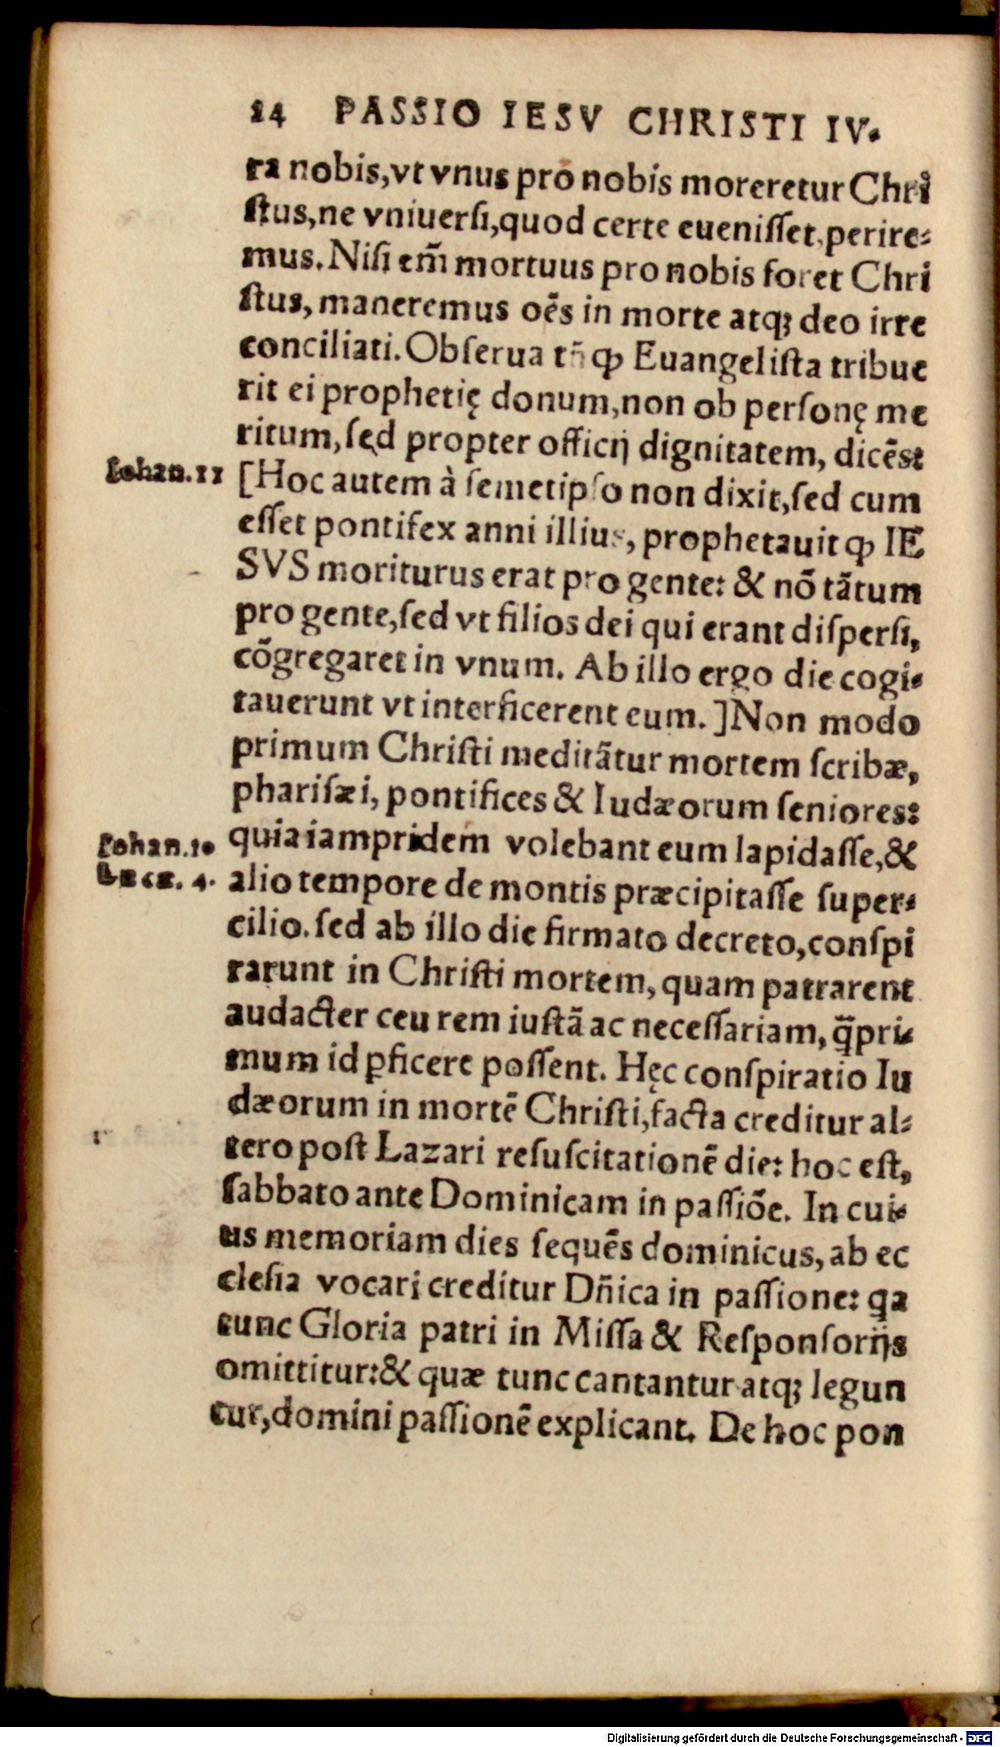 24 PASSIO IESV CHRISTI IV.
ra nobis,vt vnus pro nobis moreretur Chri
ſtus,ne vniuerſi,quod certe eueniſſet,perire⸗
mus.Niſi em̃ mortuus pro nobis foret Chri
ſtus, maneremus oẽs in morte atq; deo irre
conciliati.Obſerua tñ ꝙ Euangeliſta tribue
rit ei prophetię donum,non ob perſonę me
ritum,ſed propter officij dignitatem, dicẽs:
Iohan.11 [Hoc autem à ſemetipſo non dixit,ſed cum
eſſet pontifex anni illius, prophetauit ꝙ IE
SVS moriturus erat pro gente: & nõ tãtum
pro gente,ſed vt filios dei qui erant diſperſi,
cõgregaret in vnum. Ab illo ergo die cogi⸗
tauerunt vt interficerent eum.]Non modo
primum Chriſti meditãtur mortem ſcribæ,
phariſæi, pontifices & Iudæorum ſeniores:
Iohan.10 quia iampridem volebant eum lapidaſſe,&
Lucæ. 4. alio tempore de montis præcipitaſſe ſuper⸗
cilio.ſed ab illo die firmato decreto,conſpi
rarunt in Chriſti mortem, quam patrarent
audacter ceu rem iuſtã ac neceſſariam, q̃pri⸗
mum id ꝑficere poſſent. Hęc conſpiratio Iu
dæorum in mortẽ Chriſti,facta creditur al⸗
tero poſt Lazari reſuſcitationẽ die: hoc eſt,
ſabbato ante Dominicam in paſſiõe. In cui⸗
us memoriam dies ſequẽs dominicus, ab ec
cleſia vocari creditur Dñica in paſſione: qa
tunc Gloria patri in Miſſa & Reſponſorijs
omittitur:& quæ tunc cantantur atq; legun
tur,domini paſſionẽ explicant. De hoc pon
Digitalisierung gefördert durch die Deutsche Forschungsgemeinschaft - DFG